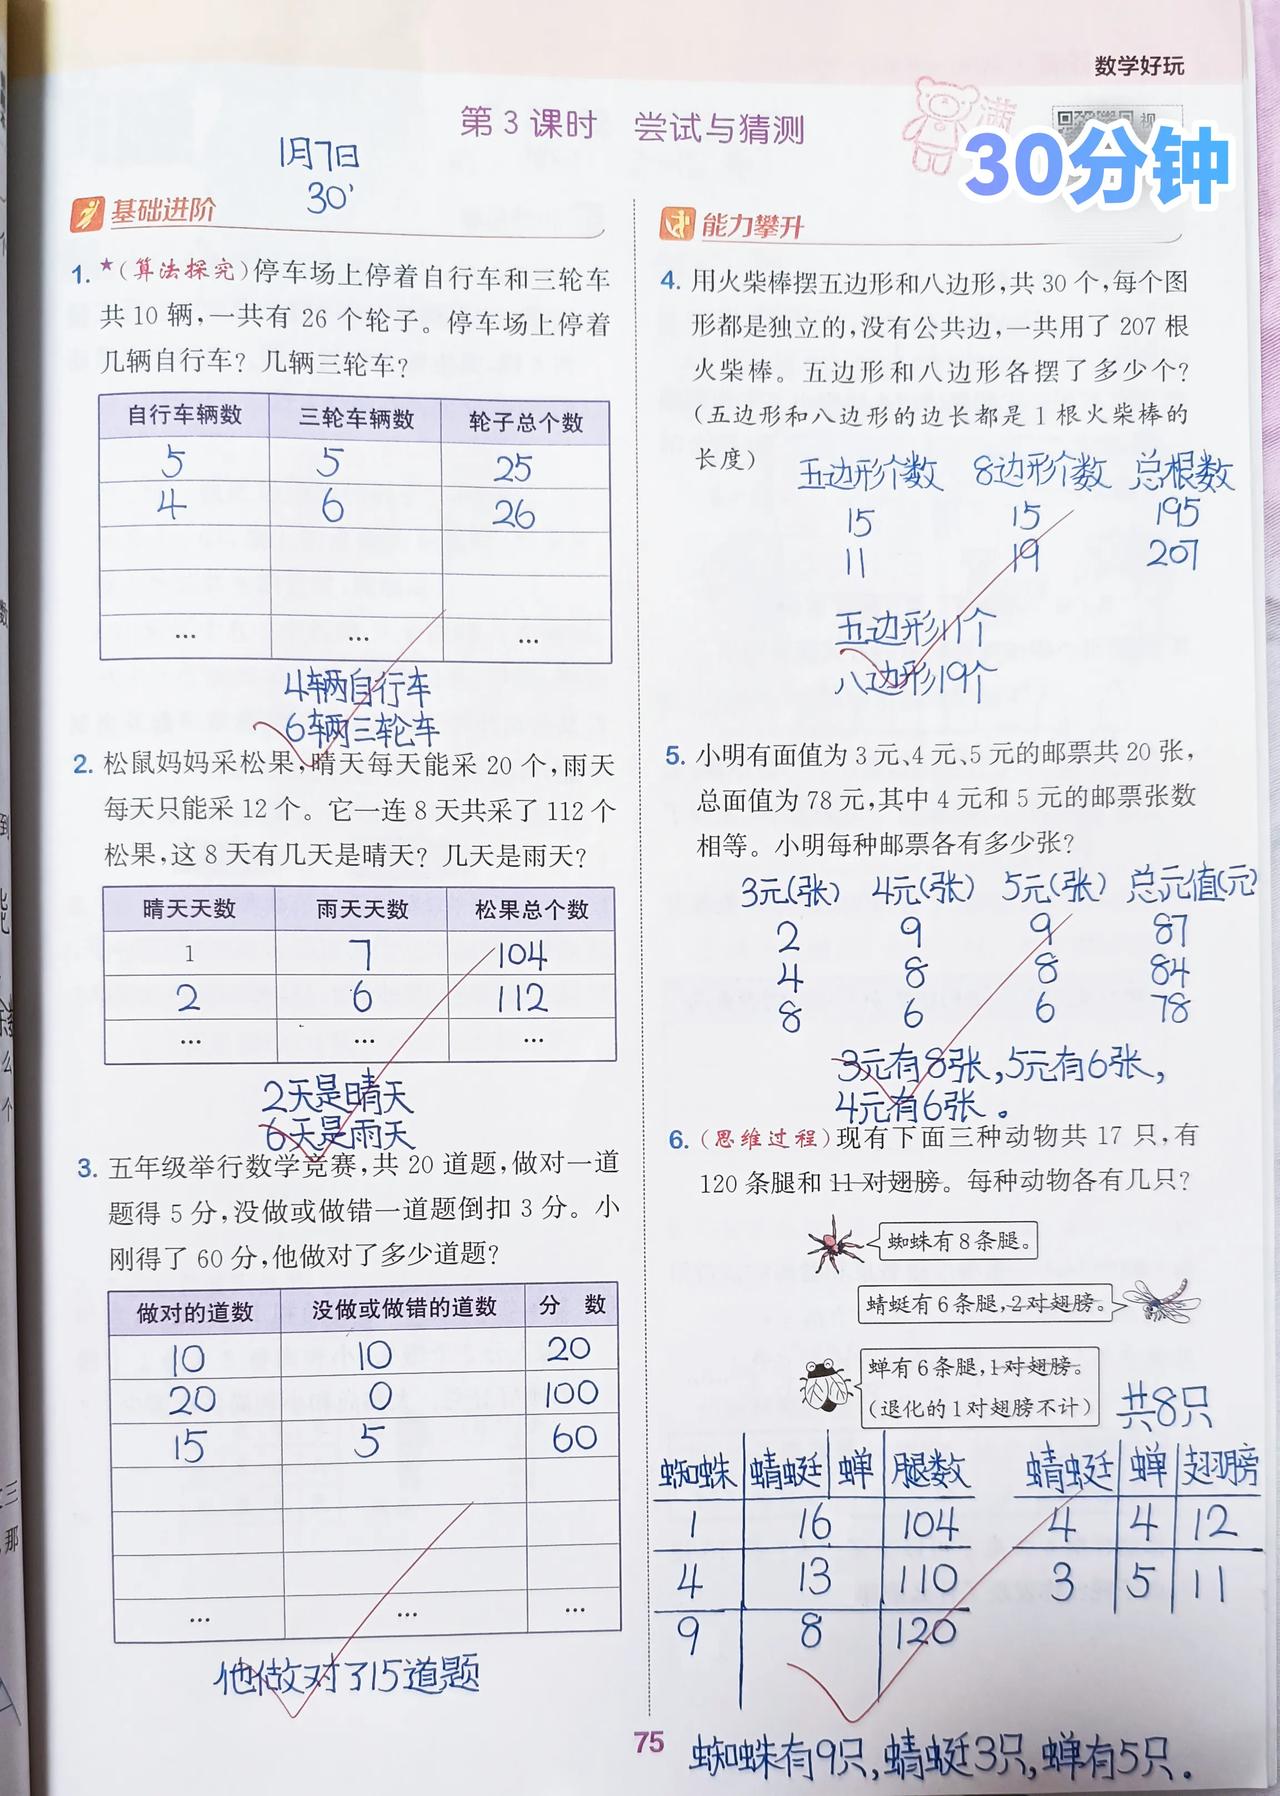 数学好玩
第3课时 尝试与猜测
满
视
30分钟
1月7日
30'
基础进阶
1. ★(算法探究)停车场上停着自行车和三轮车
共10辆,一共有26个轮子。停车场上停着
几辆自行车?几辆三轮车?
自行车辆数 三轮车辆数 轮子总个数
5 5 25
4 6 26
… … …
4辆自行车
6辆三轮车
2. 松鼠妈妈采松果,晴天每天能采20个,雨天
每天只能采12个。它一连8天共采了112个
松果,这8天有几天是晴天?几天是雨天?
晴天天数 雨天天数 松果总个数
1 7 104
2 6 112
… … …
2天是晴天
6天是雨天
3. 五年级举行数学竞赛,共20道题,做对一道
题得5分,没做或做错一道题倒扣3分。小
刚得了60分,他做对了多少道题?
做对的道数 没做或做错的道数 分 数
10 10 20
20 0 100
15 5 60
… … …
他做对了15道题
能力攀升
4. 用火柴棒摆五边形和八边形,共30个,每个图
形都是独立的,没有公共边,一共用了207根
火柴棒。五边形和八边形各摆了多少个?
(五边形和八边形的边长都是1根火柴棒的
长度)
五边形个数 8边形个数 总根数
15 15 195
11 19 207
五边形11个
八边形19个
5. 小明有面值为3元、4元、5元的邮票共20张,
总面值为78元,其中4元和5元的邮票张数
相等。小明每种邮票各有多少张?
3元(张) 4元(张) 5元(张) 总元值(元)
2 9 9 87
4 8 8 84
8 6 6 78
3元有8张,5元有6张,
4元有6张。
6. (思维过程)现有下面三种动物共17只,有
120条腿和11对翅膀。每种动物各有几只?
蜘蛛有8条腿。
蜻蜓有6条腿,2对翅膀。
蝉有6条腿,1对翅膀。
(退化的1对翅膀不计)
共8只
蜘蛛 蜻蜓 蝉 腿数
1 16 104
4 13 110
9 8 120
蜻蜓 蝉 翅膀
4 4 12
3 5 11
蜘蛛有9只,蜻蜓3只,蝉有5只.
75